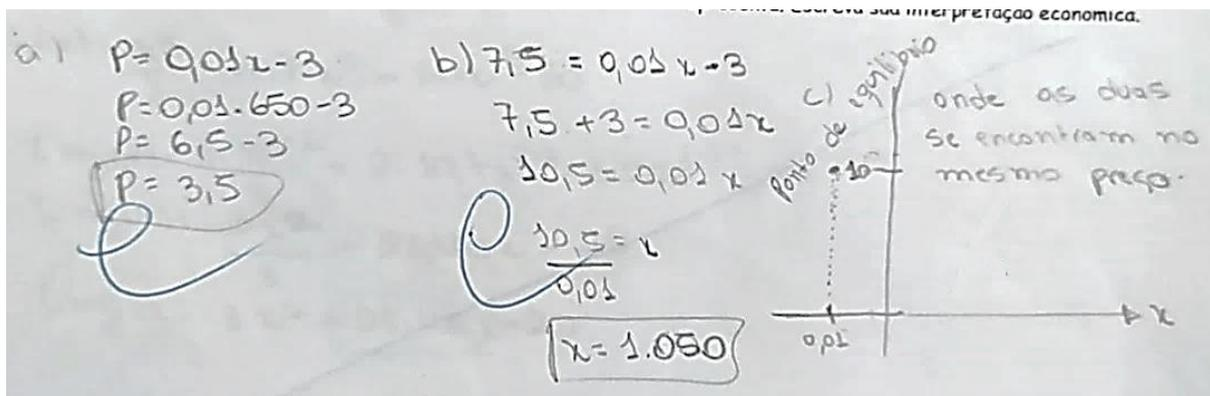 escreva sua interpretação econômica.
a) P = 0,01x - 3
P = 0,01 . 650 - 3
P = 6,5 - 3
P = 3,5
b) 7,5 = 0,01x - 3
7,5 + 3 = 0,01x
10,5 = 0,01x
10,5 = x
0,01
x = 1.050
c) Ponto de equilíbrio
onde as duas
se encontram no
mesmo preço.
10
x
0,01